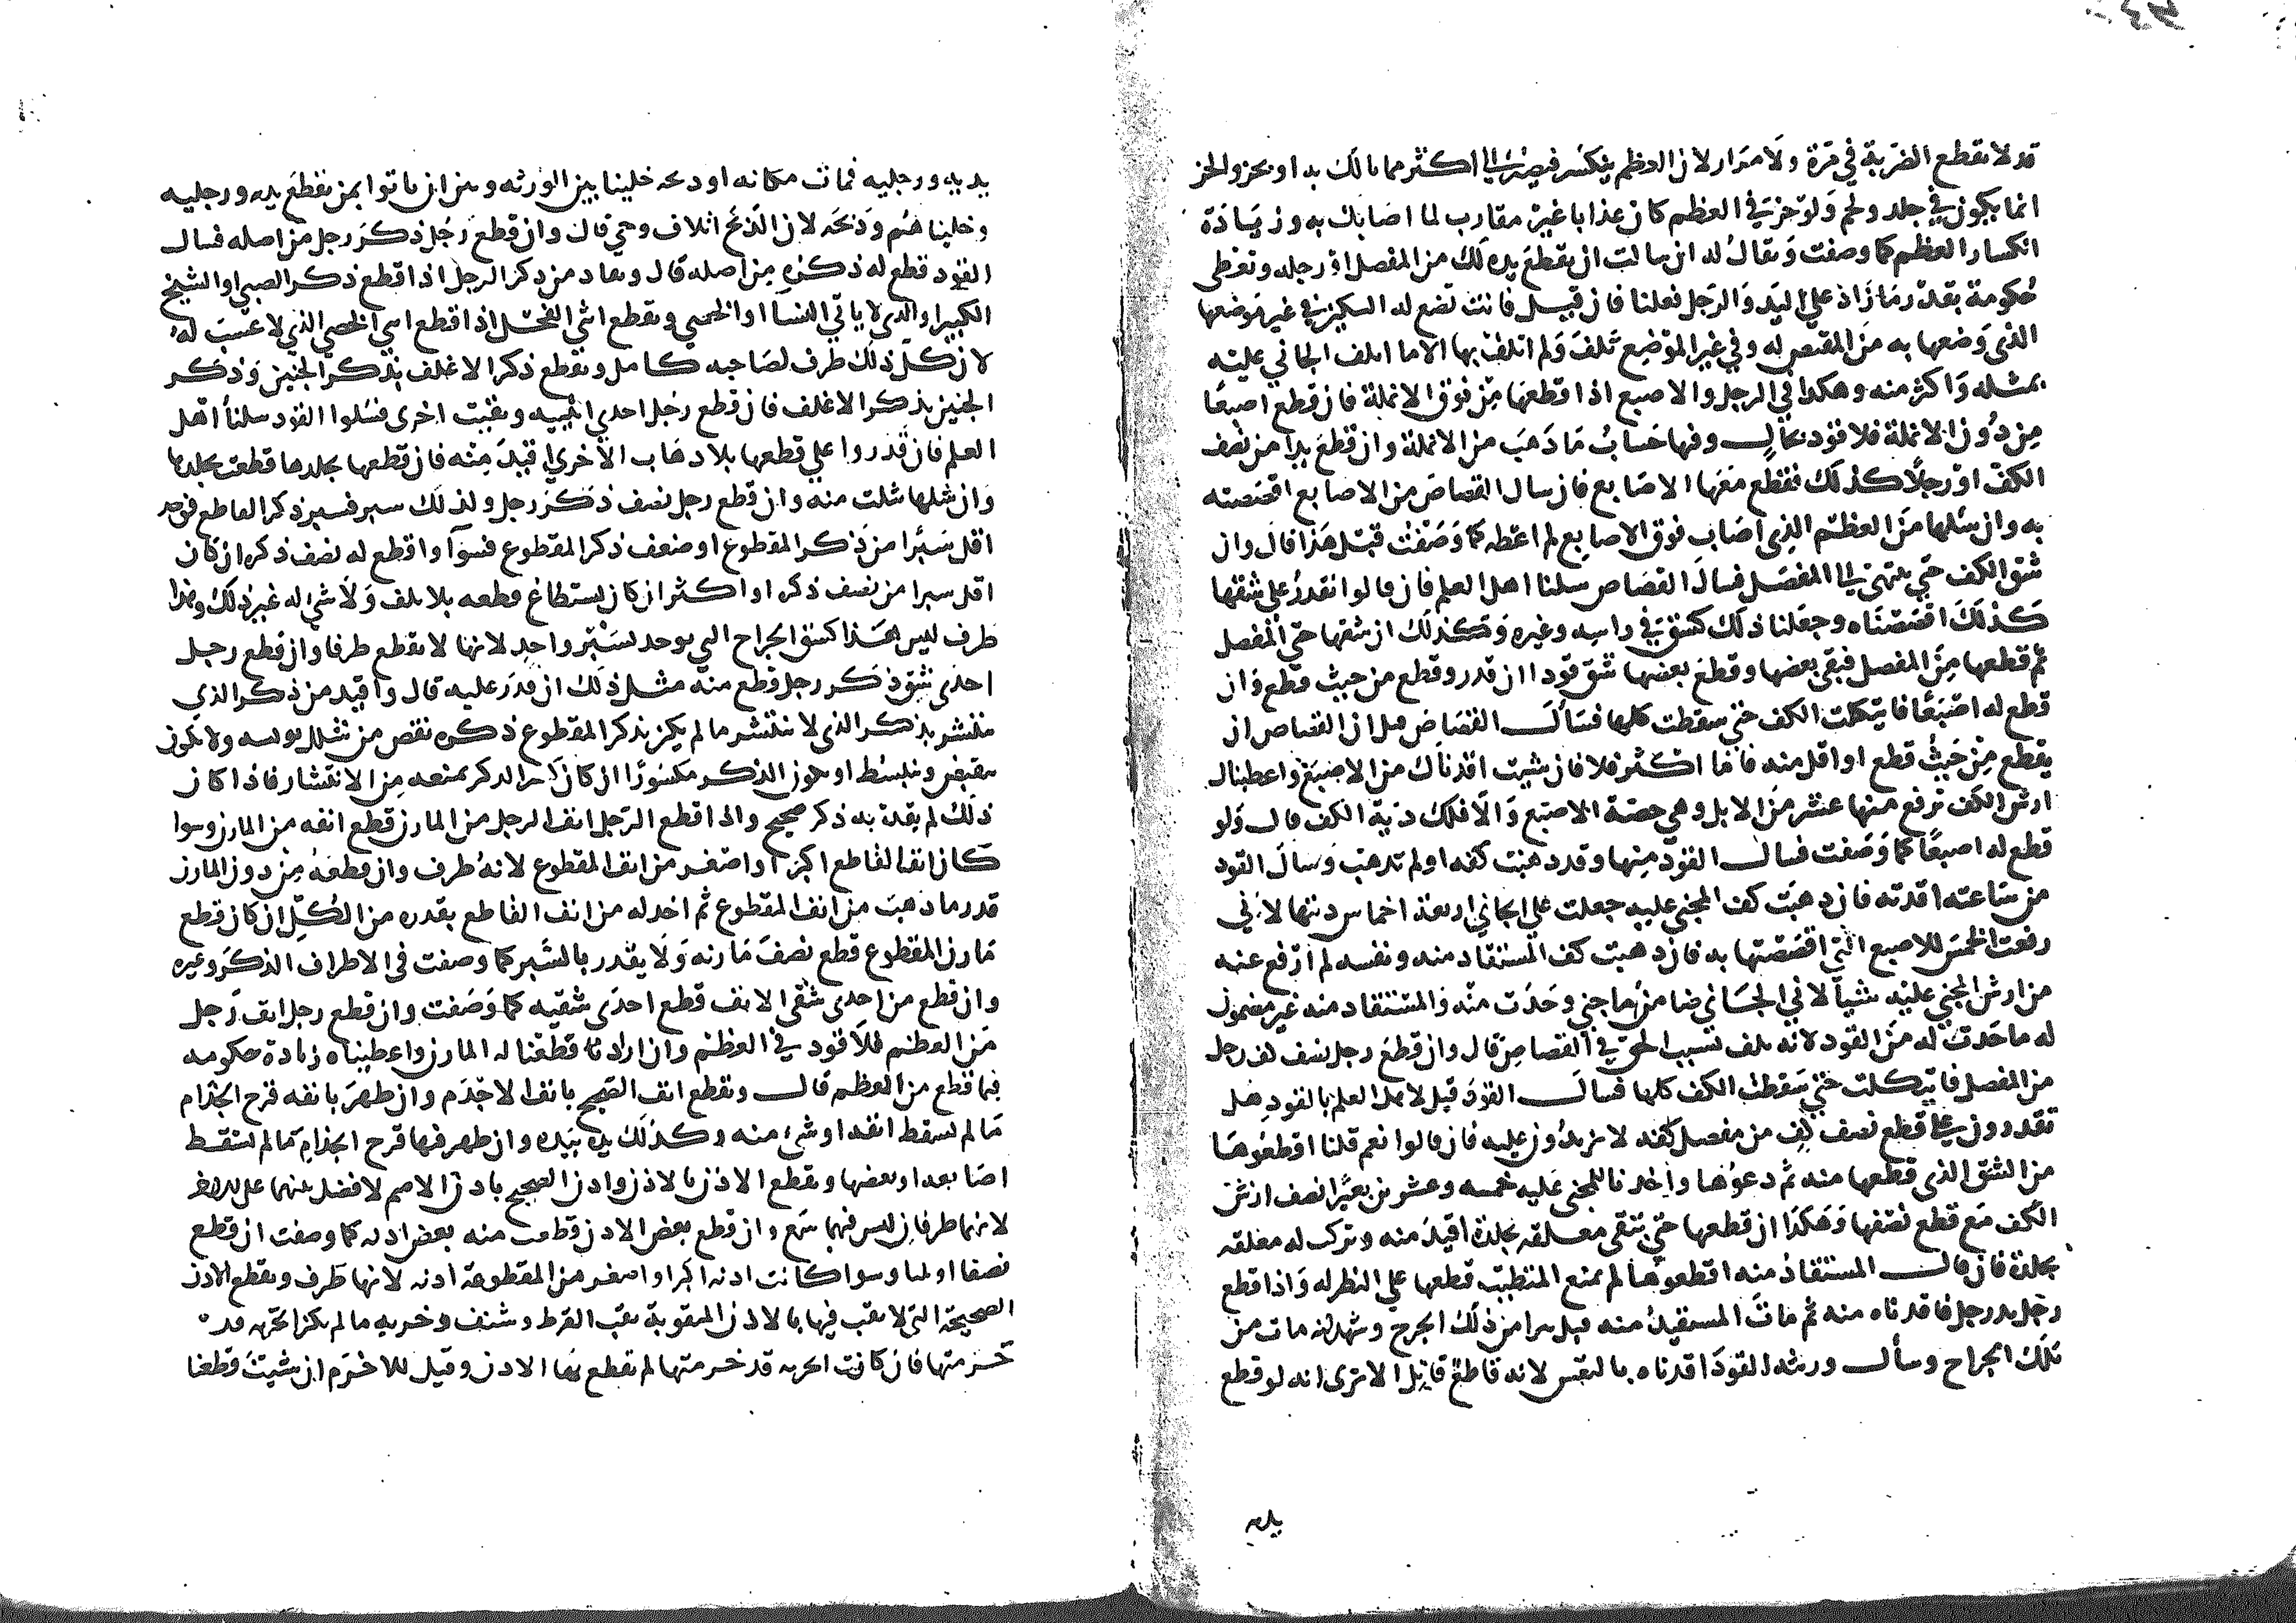 قد لا تقطع الضربة في مرة ولا مرار لان العظم ينكسر فيصير الي اكثر مما نالك به او يحز والحز
انما يكون في جلد ولحم ولو حز في العظم كان عذابا غير مقارب لما اصابك به وزيادة
انكسار العظم كما وصفت ويقال له ان سالت ان يقطع يده لك من المفصل او رجله وتعطي
حكومة بقدر ما زاد علي اليد والرجل فعلنا فان قيل فانت تضع له السكين في غير موضعها
الذي وضعها به من المقتص له وفي غير الموضع تلف ولم اتلف بها الا ما اتلف الجاني عليه
بمثله واكثر منه وهكذا في الرجل والاصبع اذا قطعها من فوق الانملة فان قطع اصبعا
من دون الانملة فلا قود بحال وفيها حساب ما ذهب من الانملة وان قطع يدا من نصف
الكف او رجلا كذلك فقطع معها الاصابع فان سال القصاص من الاصابع اقصصته
به وان سئلها من العظم الذي اصاب فوق الاصابع لم اعطه كما وصفت قبل هذا قال وان
شق الكف حتي ينتهي الي المفصل فسال القصاص سلنا اهل العلم فان قالوا نقدر علي شقها
كذلك اقصصناه وجعلنا ذلك كشق في راسه وغيره وكذلك ان شقها حتي المفصل
ثم قطعها من المفصل فبقي بعضها وقطع بعضها شق قودا ان قدر وقطع من حيث قطع وان
قطع له اصبعا فايتكلت الكف حتي سقطت كلها فسال القصاص قيل ان القصاص ان
يقطع من حيث قطع او اقل منه فاما اكثر فلا فان شيت اقدناك من الاصبع واعطيناك
ارش الكف نرفع منها عشر من الابل وهي حصة الاصبع والا فلك دية الكف قال ولو
قطع له اصبعا كما وصفت فسال القود منها وقد ذهبت كفه او لم تذهب وسال القود
من ساعته اقدته فان ذهبت كف المجني عليه جعلت علي الجاني اربعة اخماس ديتها لاني
رفعت الخمس للاصبع التي اقصصتها به فان ذهبت كف المستقاد منه ونفسه لم ارفع عنه
من ارش المجني عليه شيا لاني الجاني ضامن ما جني وحدث منه والمستقاد منه غير مضمون
له ما حدث له من القود لانه تلف بسبب الحق في القصاص قال وان قطع رجل نصف كف رجل
من المفصل فايتكلت حتي سقطت الكف كلها فسال القود قيل لاهل العلم بالقود هل
تقدرون علي قطع نصف كف من مفصل كفه لا يزيدون عليه فان قالوا نعم قلنا اقطعوها
من الشق الذي قطعها منه ثم دعوها واخذنا للمجني عليه خمسه وعشرين بعيرا نصف ارش
الكف مع قطع نصفها وهكذا ان قطعها حتي تبقي معلقه بجلدة اقيد منه وترك له معلقه
بجلدة فان قال المستقاد منه اقطعوها لم يمنع المتطبب قطعها علي النظر له واذا قطع
رجل يد رجل فاقدناه منه ثم مات المستقيد منه قبل يبرا من ذلك الجرح وشهد انه مات من
تلك الجراح وسأل ورثته القود اقدناه بالنفس لانه قاطع قاتل الا تري انه لو قطع
يديه
يديه ورجليه فمات مكانه او ذبحه خلينا بين الورثه وبين ان ياتوا بمن يقطع يديه ورجليه
وخليناهم وذبحه لان الذبح اتلاف وحي قال وان قطع رجل ذكر رجل من اصله فسال
القود قطع له ذكره من اصله قال ويقاد من ذكر الرجل اذا قطع ذكر الصبي او الشيخ
الكبير او الذي لا ياتي النسا او الخصي ويقطع انثي الفحل اذا قطع انثي الخصي الذي لا عسيب له
لان كل ذلك طرف لصاحبه كامل ويقطع ذكر الاغلف بذكر المختتن وذكر
المختتن بذكر الاغلف فان قطع رجل احدي انثييه وبقيت اخري فسئلوا القود سلنا اهل
العلم فان قدروا علي قطعها بلا ذهاب الاخري اقيد منه فان قطعها بجلدها قطعت بجلدها
وان سلها سلت منه وان قطع رجل نصف ذكر رجل ولذلك سبر فسبر ذكر القاطع فوجد
اقل سبرا من ذكر المقطوع او ضعف ذكر المقطوع فسوآ واقطع له نصف ذكره ان كان
اقل سبرا من نصف ذكره او اكثر ان كان يستطاع قطعه بلا تلف ولا شي له غير ذلك وهذا
طرف ليس هذا كشق الجراح التي توخذ بسبر واحد لانها لا تقطع طرفا وان قطع رجل
احدي شقي ذكر رجل قطع منه مثل ذلك ان قدر عليه قال واقيد من ذكر الذي
ينتشر بذكر الذي لا ينتشر ما لم يكن بذكر المقطوع ذكره نقص من شلل يوبسه ولا يكون
ينقبض وينبسط او يكون الذكر مكسورا ان كان كسر الذكر يمنعه من الانتشار فاذا كان
ذلك لم يقد به ذكر صحيح واذا قطع الرجل انف الرجل من المارن قطع انفه من المارن وسوا
كان انف القاطع اكبر او اصغر من انف المقطوع لانه طرف وان قطعه من دون المارن
قدر ما ذهب من انف المقطوع ثم اخذ له من انف القاطع بقدره من الكل ان كان قطع
مارن المقطوع قطع نصف مارنه ولا يقدر بالشبر كما وصفت في الاطراف الذكر وغيره
وان قطع من احدي شقي الانف قطع احدي شقيه كما وصفت وان قطع رجل انف رجل
من العظم فلا قود في العظم وان اراد قطعنا له المارن واعطيناه زيادة حكومه
فيما قطع من العظم قال ويقطع انف الصحيح بانف الاجذم وان ظهر بانفه قرح الجذام
ما لم يسقط انفه او شئ منه وكذلك يده بيده وان ظهر فيها قرح الجذام ما لم تسقط
اصابعه او بعضها ويقطع الاذن بالاذن واذن الصحيح باذن الاصم لا فضل بينهما علي
لانهما طرفان ليس فيهما سمع وان قطع بعض الاذن قطعت منه بعض اذنه كما وصفت ان قطع
نصفا او ثلثا وسوا كانت اذنه اكبر او اصغر من المقطوعة اذنه لانها طرف ويقطع الاذن
الصحيحة التي لا ثقب فيها بالاذن المثقوبة ثقب القرط وشنف وخربه ما لم يكن الخربه قد
خرمتها فان كانت الخربه قد خرمتها لم تقطع بها الاذن وقيل للاخرم ان شيت قطعنا